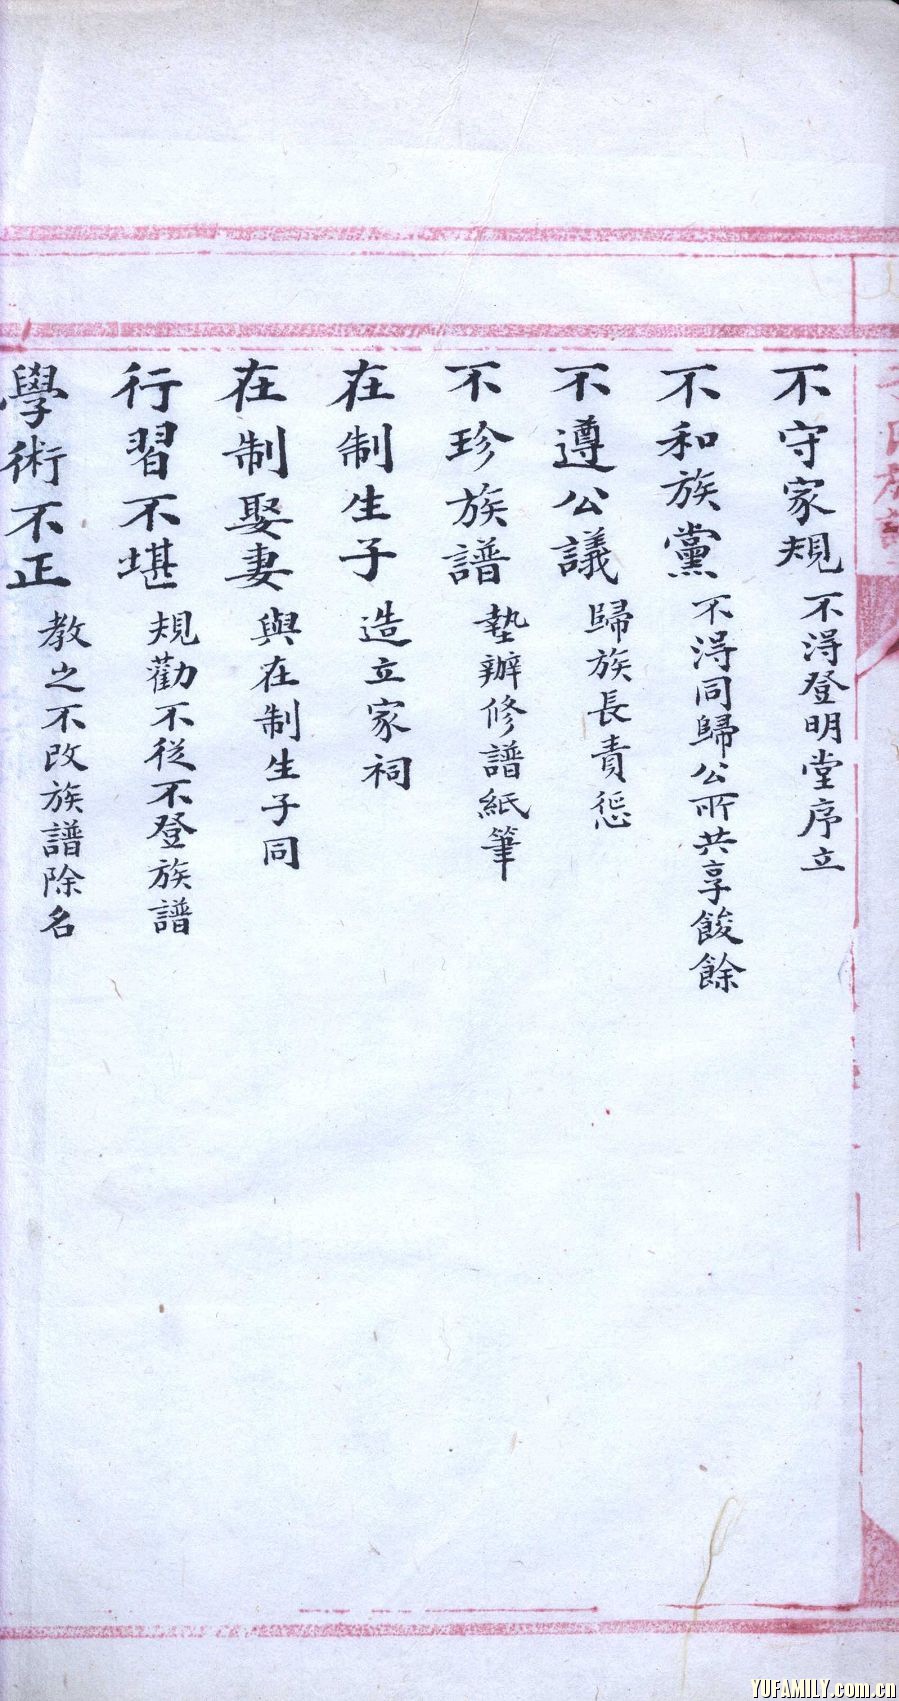 不守家規 不得登明堂序立
不和族黨 不得同歸公所共享餕餘
不遵公議 歸族長責懲
不珍族譜 墊辦修譜紙筆
在制生子 造立家祠
在制娶妻 與在制生子同
行習不堪 規勸不從不登族譜
學術不正 教之不改族譜除名
YUFAMILY.com.cn